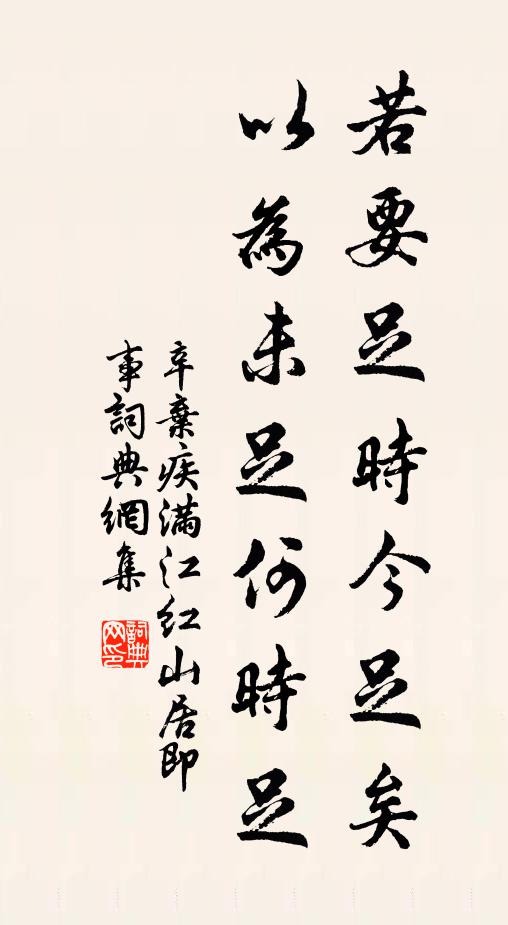 若要足時今足矣
以為未足何時足
辛棄疾滿江红山居即
事詞典網集
詞典
网印